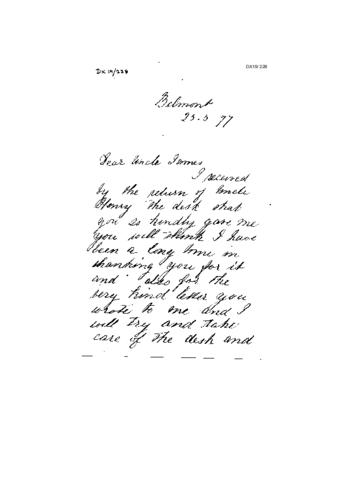 DX19/228
DX19/228
Belmont
23.5 77
Dear Uncle James
I received
by the return of Uncle
Henry the desk that
you so kindly gave me
you will think I have
been a long time in
thanking you for it
and also for the
very kind letter you
wrote to me and I
will try and take
care of the desk and